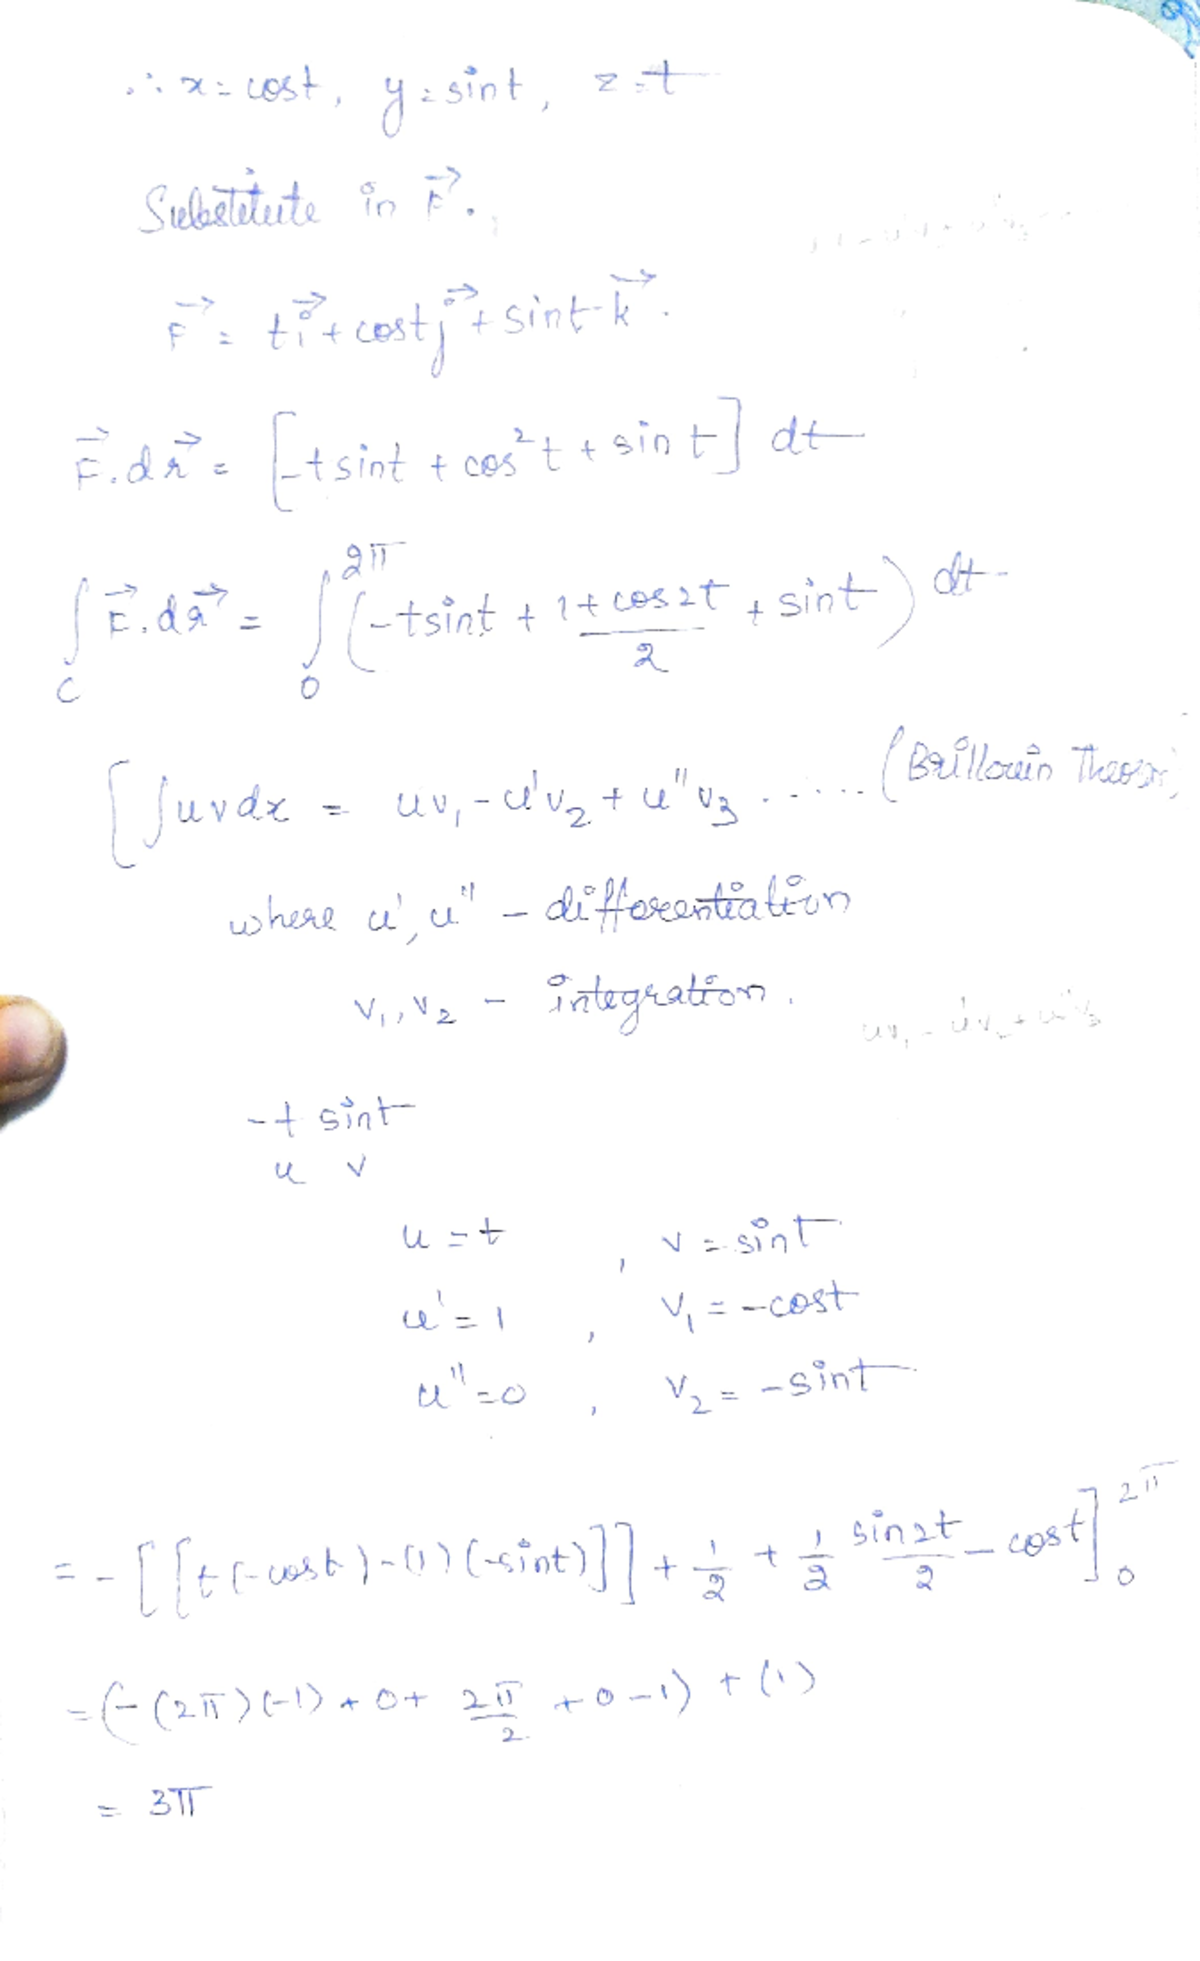 ∴ x = cost, y = sint, z = t
Substitute in F⃗.
F⃗ = t i⃗ + cost j⃗ + sint k⃗.
F⃗.dr⃗ = [-tsint + cos²t + sint] dt
∫_C F⃗.dr⃗ = ∫_0^{2π} (-tsint + (1+cos2t)/2 + sint) dt
[∫uvdx = uv₁ - u'v₂ + u''v₃ ...... (Brillouin Theorem)
where u', u'' - differentiation
v₁, v₂ - integration.
uv₁ - u'v₂ + u''v₃
-t sint
u v
u = t , v = sint
u' = 1 , v₁ = -cost
u'' = 0 , v₂ = -sint
= -[[t(-cost)-(1)(-sint)]] + 1/2 + 1/2 sin2t/2 - cost]_0^{2π}
= (-(2π)(-1) + 0 + 2π/2 + 0 - 1) + (1)
= 3π